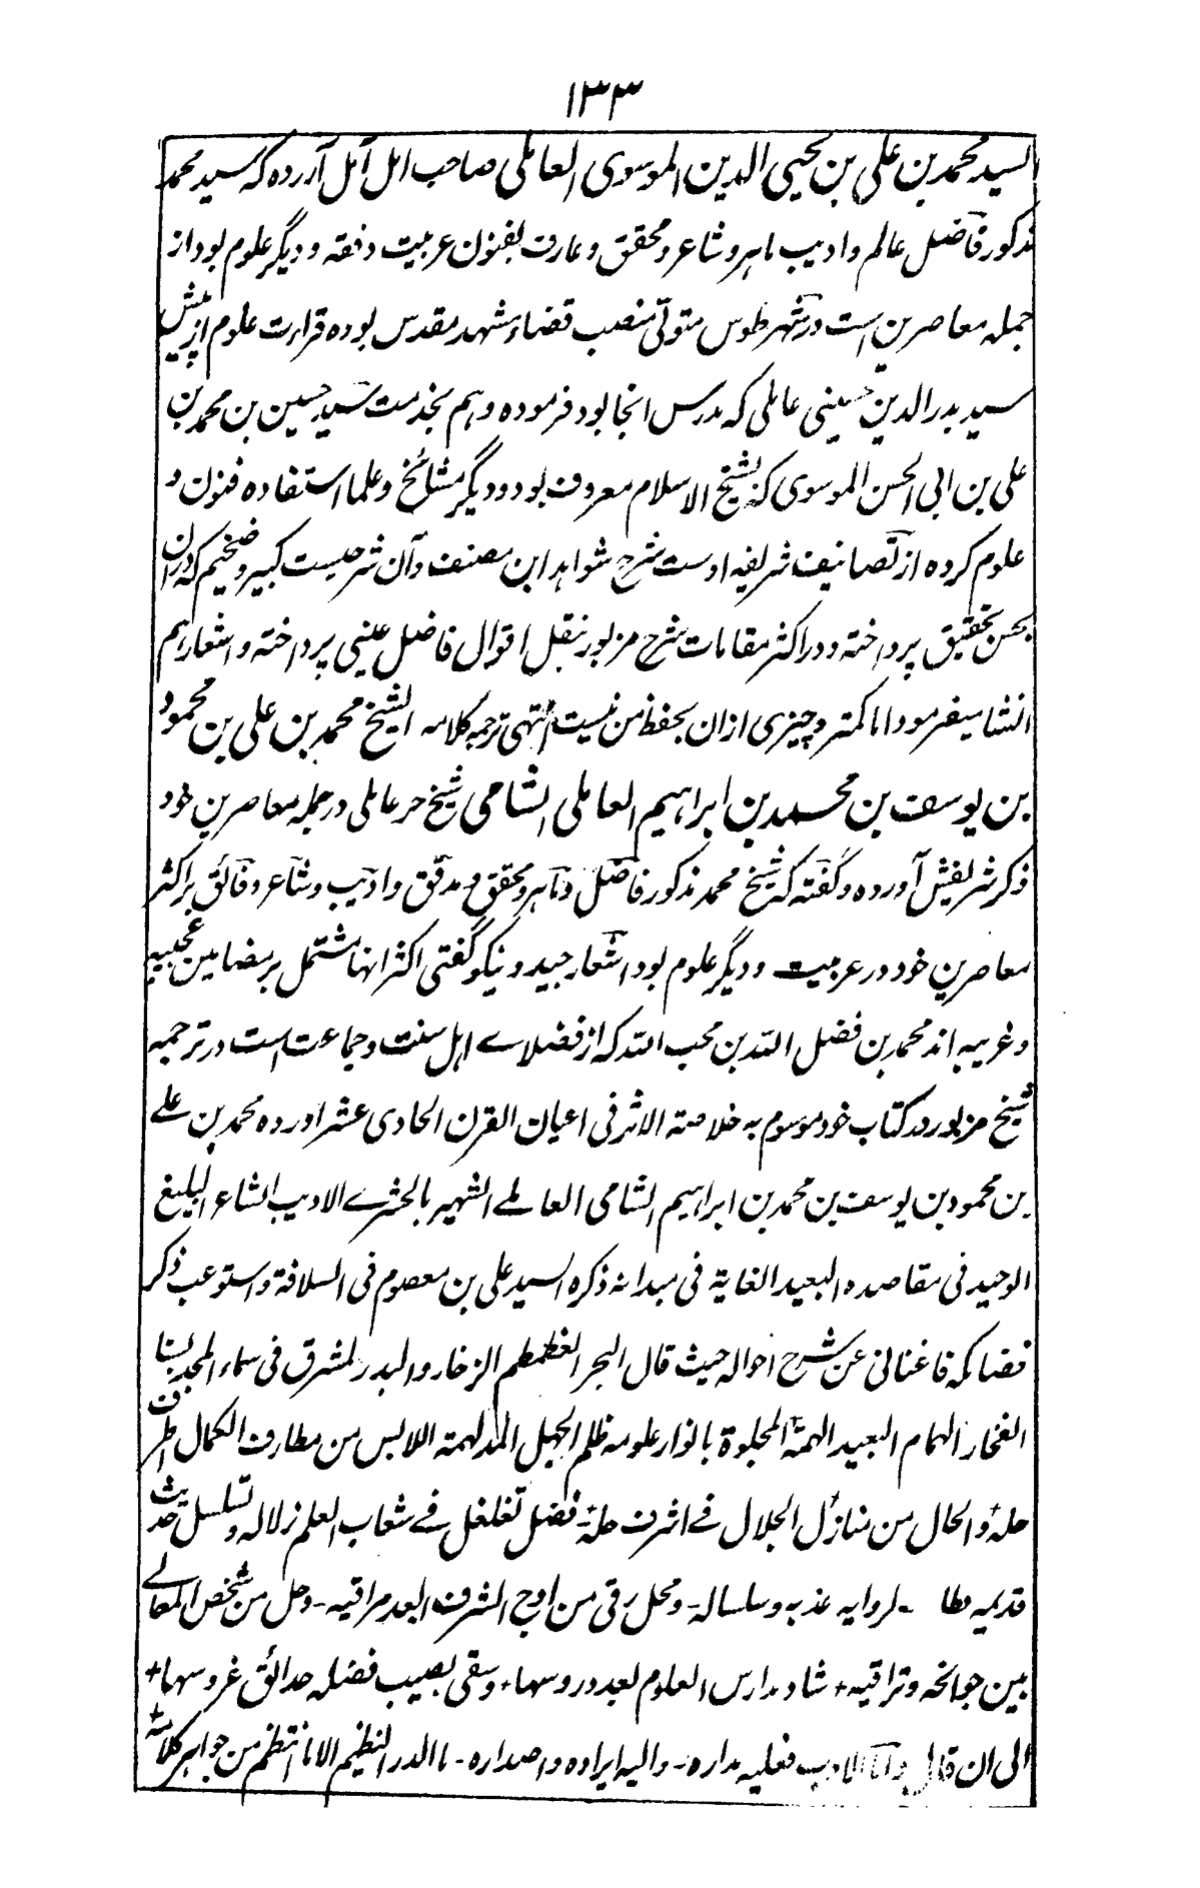 ۱۳۳
السید محمد بن علی بن محیی الدین الموسوی العاملی صاحب امل آمل آورده که سید محمد
مذکور فاضل عالم وادیب ماهر و شاعر و محقق و عارف بفنون عربیت وفقه و دیگر علوم بود از
جمله معاصرین است در شهر طوس متولّی منصب قضاء مشهد مقدس بوده قراءت علوم از پیش
سید بدر الدین حسینی عاملی که مدرس انجا بود فرموده و هم بخدمت سید حسین بن محمد بن
علی بن ابی الحسن الموسوی که بشیخ الاسلام معروف بود و دیگر مشائخ و علما استفاده فنون و
علوم کرده از تصانیف شریفه اوست شرح شواهد ابن مصنف و آن شرحیست کبیر و ضخیم که دران
بحسن تحقیق پرداخته و در اکثر مقامات شرح مزبور بنقل اقوال فاضل عینی پرداخته و اشعار هم
انشا میفرمود اما کمتر و چیزی ازان بحفظ من نیست انتهی ترجمة کلامه الشیخ محمد بن علی بن محمود
بن یوسف بن محمد بن ابراهیم العاملی الشامی شیخ حر عاملی در جمله معاصرین خود
ذکر شریفش آورده و گفته که شیخ محمد مذکور فاضل و ماهر و محقق و مدقق و ادیب و شاعر و فائق بر اکثر
معاصرین خود در عربیت و دیگر علوم بود اشعار جید و نیکو گفتی اکثر انها مشتمل بر مضامین عجیبه
و غریبه اند محمد بن فضل الله بن محب الله که از فضلاے اهل سنت و جماعت است در ترجمه
شیخ مزبور در کتاب خود موسوم به خلاصة الاثر فی اعیان القرن الحادی عشر اورده محمد بن علے
بن محمود بن یوسف بن محمد بن ابراهیم الشامی العاملے الشهیر بالحشرے الادیب الشاعر البلیغ
الوحید فی مقاصده البعید الغایة فی میدانه ذکره السید علی بن معصوم فی السلافة واستوعب ذکر
فضائله فاغنانی عن شرح احواله حیث قال البحر الغطمطم الزخار والبدر المشرق فی سماء المجد بسنا
الفخار الهمام البعید الهمة المجلوة بانوار علومه ظلم الجهل المدلهمة اللابس من مطارف الکمال اطرف
حلة والحال من منازل الجلال فے اشرف حلة فضل تغلغل فے شعاب العلم زلاله وتسلسل حدیث
قدیمه فطا - لروایه عذبه وسلساله - ومحل رقی من اوج الشرف ابعد مراقیه - وحل من شخص المعالے
بین جوانحه وتراقیه + شاد مدارس العلوم بعد دروسها + وسقی بصیب فضله حدائق غروسها +
الی ان قال واما الادب فعلیه مداره - والیه ایراده واصداره - ما الدر النظیم الا ما انتظم من جواهر کلامه +